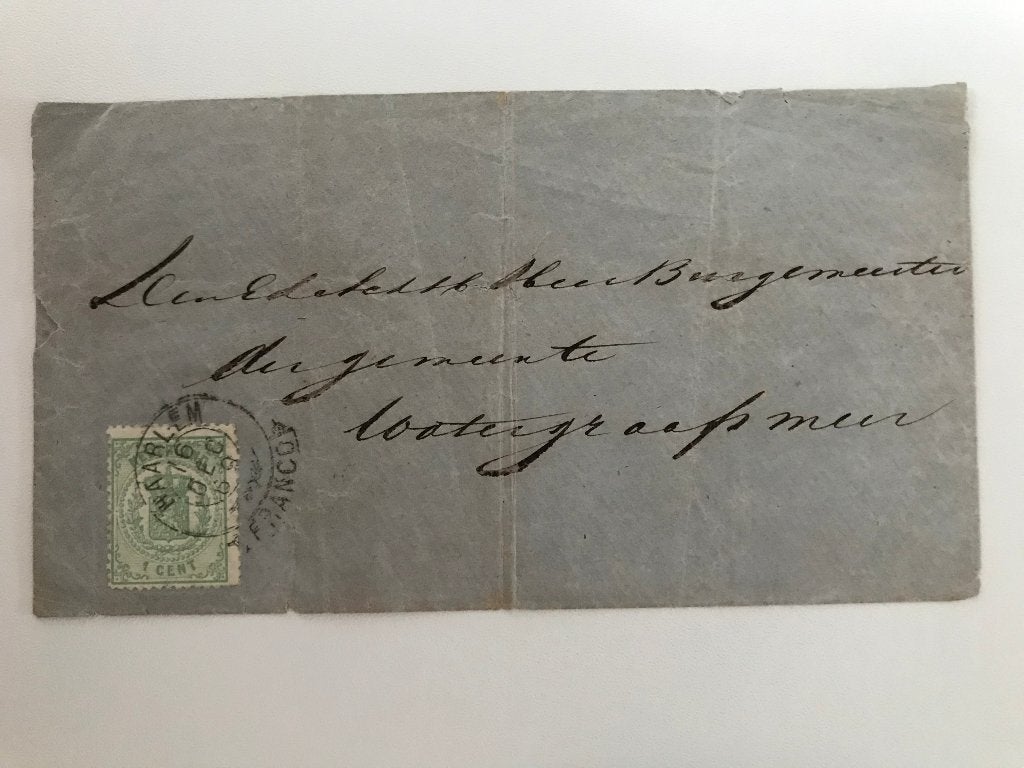 Den EdelAchtb Heer Burgemeester
der gemeente
Watergraafsmeer
HAARLEM
FRANCO
1 CENT